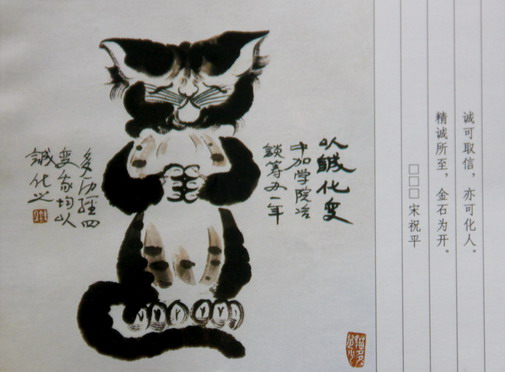 诚可取信，亦可化人。
精诚所至，金石为开。
□□□ 宋祝平
以誠化变
中加学院洽
談筹办一年
多历經四
变余均以
誠化之